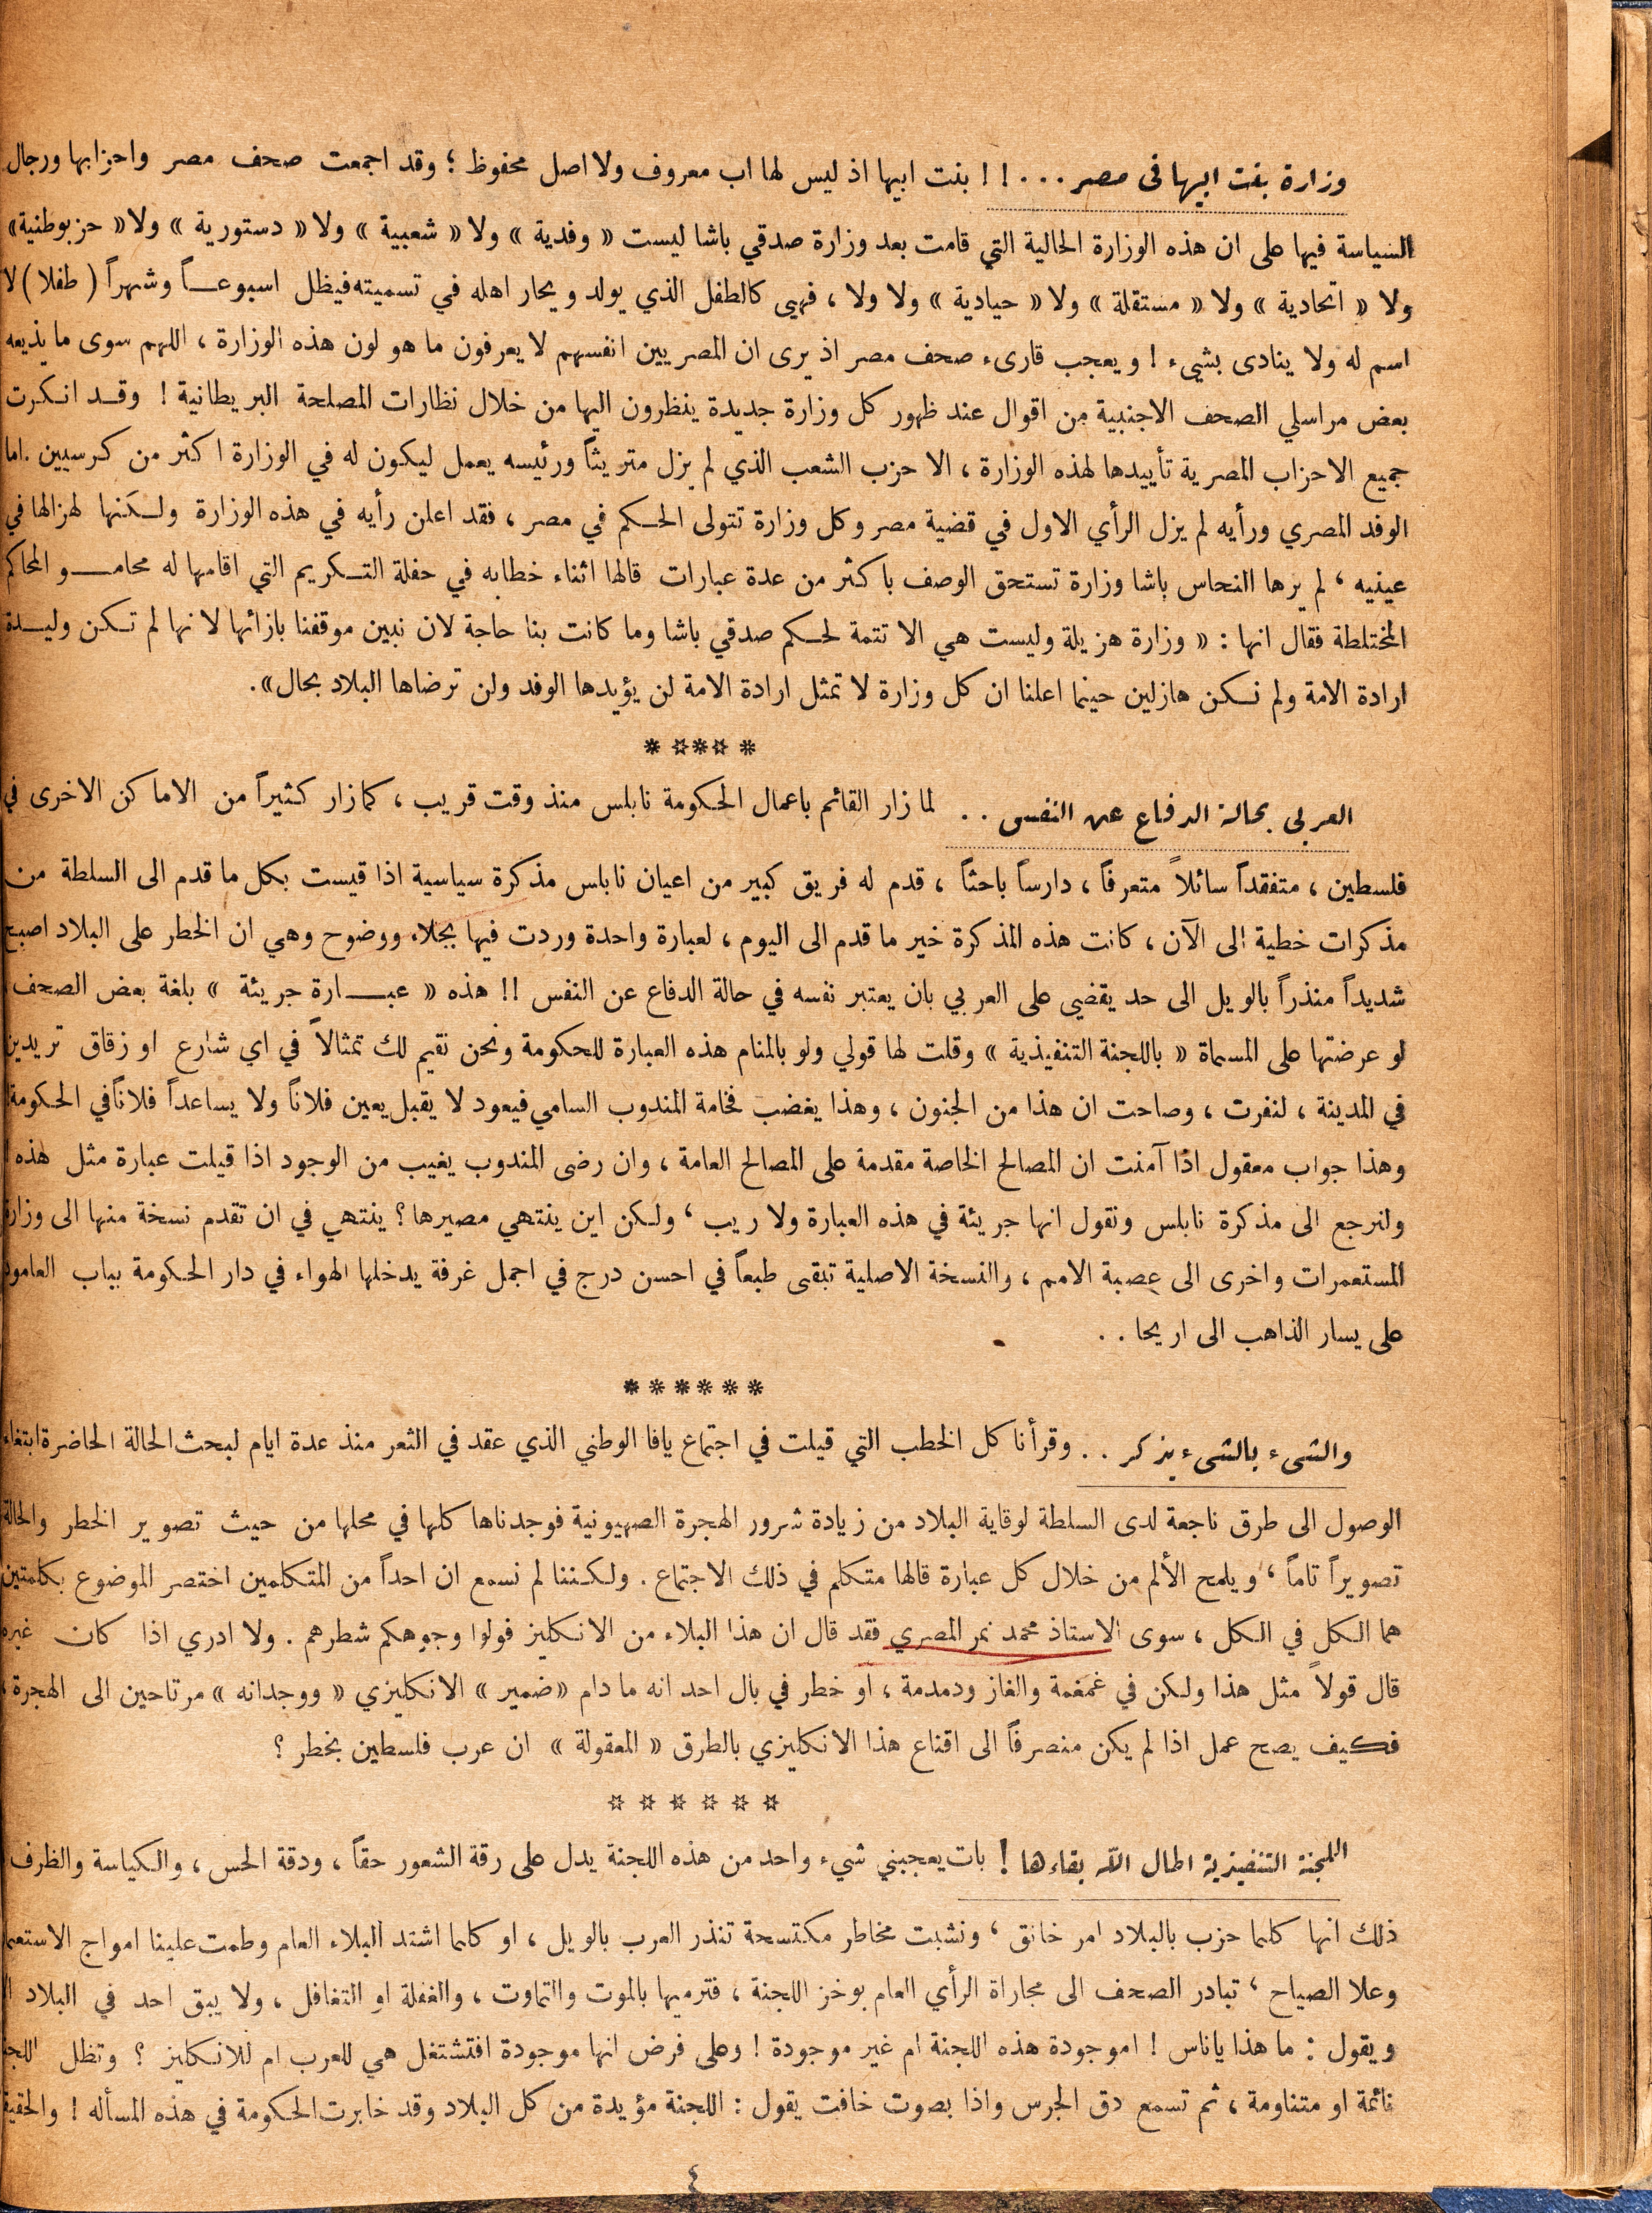 وزارة بنت ابيها في مصر . . . ! ! بنت ابيها اذ ليس لها اب معروف ولا اصل محفوظ ؛ وقد اجمعت صحف مصر واحزابها ورجال
السياسة فيها على ان هذه الوزارة الحالية التي قامت بعد وزارة صدقي باشا ليست « وفدية » ولا « شعبية » ولا « دستورية » ولا « حزبوطنية»
ولا « اتحادية » ولا « مستقلة » ولا « حيادية » ولا ولا ، فهي كالطفل الذي يولد ويحار اهله في تسميته فيظل اسبوعاً وشهراً ( طفلا ) لا
اسم له ولا ينادى بشيء ! ويعجب قارىء صحف مصر اذ يرى ان المصريين انفسهم لا يعرفون ما هو لون هذه الوزارة ، اللهم سوى ما يذيعه
بعض مراسلي الصحف الاجنبية من اقوال عند ظهور كل وزارة جديدة ينظرون اليها من خلال نظارات المصلحة البريطانية ! وقد انكرت
جميع الاحزاب المصرية تأييدها لهذه الوزارة ، الا حزب الشعب الذي لم يزل متريثاً ورئيسه يعمل ليكون له في الوزارة اكثر من كرسيين . اما
الوفد المصري ورأيه لم يزل الرأي الاول في قضية مصر وكل وزارة تتولى الحكم في مصر ، فقد اعلن رأيه في هذه الوزارة ولكنها لهزالها في
عينيه ، لم يرها النحاس باشا وزارة تستحق الوصف باكثر من عدة عبارات قالها اثناء خطابه في حفلة التكريم التي اقامها له محامو المحاكم
المختلطة فقال انها : « وزارة هزيلة وليست هي الا تتمة لحكم صدقي باشا وما كانت بنا حاجة لان نبين موقفنا بازائها لانها لم تكن وليدة
ارادة الامة ولم نكن هازلين حينما اعلنا ان كل وزارة لا تمثل ارادة الامة لن يؤيدها الوفد ولن ترضاها البلاد بحال» .
* * * * *
العربي بحالة الدفاع عن النفس . . لما زار القائم باعمال الحكومة نابلس منذ وقت قريب ، كما زار كثيراً من الاماكن الاخرى في
فلسطين ، متفقداً سائلاً متعرفاً ، دارساً باحثاً ، قدم له فريق كبير من اعيان نابلس مذكرة سياسية اذا قيست بكل ما قدم الى السلطة من
مذكرات خطية الى الآن ، كانت هذه المذكرة خير ما قدم الى اليوم ، لعبارة واحدة وردت فيها بجلاء ووضوح وهي ان الخطر على البلاد اصبح
شديداً منذراً بالويل الى حد يقضي على العربي بان يعتبر نفسه في حالة الدفاع عن النفس !! هذه « عبارة جريئة » بلغة بعض الصحف ،
لو عرضتها على المسماة « باللجنة التنفيذية » وقلت لها قولي ولو بالمنام هذه العبارة للحكومة ونحن نقيم لك تمثالاً في اي شارع او زقاق تريدين
في المدينة ، لنفرت ، وصاحت ان هذا من الجنون ، وهذا يغضب فخامة المندوب السامي فيعود لا يقبل يعين فلاناً ولا يساعداً فلاناً في الحكومة !
وهذا جواب معقول اذا آمنت ان المصالح الخاصة مقدمة على المصالح العامة ، وان رضى المندوب يغيب من الوجود اذا قيلت عبارة مثل هذه !
ولنرجع الى مذكرة نابلس ونقول انها جريئة في هذه العبارة ولا ريب ، ولكن اين ينتهي مصيرها ؟ ينتهي في ان تقدم نسخة منها الى وزارة
المستعمرات واخرى الى عصبة الامم ، والنسخة الاصلية تبقى طبعاً في احسن درج في اجمل غرفة يدخلها الهواء في دار الحكومة بباب العامود
على يسار الذاهب الى اريحا . .
* * * * * *
والشيء بالشيء يذكر . . وقرأنا كل الخطب التي قيلت في اجتماع يافا الوطني الذي عقد في الثغر منذ عدة ايام لبحث الحالة الحاضرة ابتغاء
الوصول الى طرق ناجعة لدى السلطة لوقاية البلاد من زيادة شرور الهجرة الصهيونية فوجدناها كلها في محلها من حيث تصوير الخطر والحالة
تصويراً تاماً ، ويلمح الألم من خلال كل عبارة قالها متكلم في ذلك الاجتماع . ولكننا لم نسمع ان احداً من المتكلمين اختصر الموضوع بكلمتين
هما الكل في الكل ، سوى الاستاذ محمد نمر المصري فقد قال ان هذا البلاء من الانكليز فولوا وجوهكم شطرهم . ولا ادري اذا كان غيره
قال قولاً مثل هذا ولكن في غمغمة والغاز ودمدمة ، او خطر في بال احد انه ما دام «ضمير» الانكليزي « ووجدانه » مرتاحين الى الهجرة ،
فكيف يصح عمل اذا لم يكن منصرفاً الى اقناع هذا الانكليزي بالطرق « المعقولة » ان عرب فلسطين بخطر ؟
* * * * * *
اللجنة التنفيذية اطال الله بقاءها ! بات يعجبني شيء واحد من هذه اللجنة يدل على رقة الشعور حقاً ، ودقة الحس ، والكياسة والظرف
ذلك انها كلما حزب بالبلاد امر خانق ، ونشبت مخاطر مكتسحة تنذر العرب بالويل ، او كلما اشتد البلاء العام وطمت علينا امواج
وعلا الصياح ، تبادر الصحف الى مجاراة الرأي العام بوخز اللجنة ، فترميها بالموت والتماوت ، والغفلة او التغافل ، ولا يبق احد في البلاد
ويقول : ما هذا ياناس ! اموجودة هذه اللجنة ام غير موجودة ! وعلى فرض انها موجودة افتشتغل هي للعرب ام للانكليز ؟ وتظل
نائمة او متناومة ، ثم تسمع دق الجرس واذا بصوت خافت يقول : اللجنة مؤيدة من كل البلاد وقد خابرت الحكومة في هذه المسأله !
٤